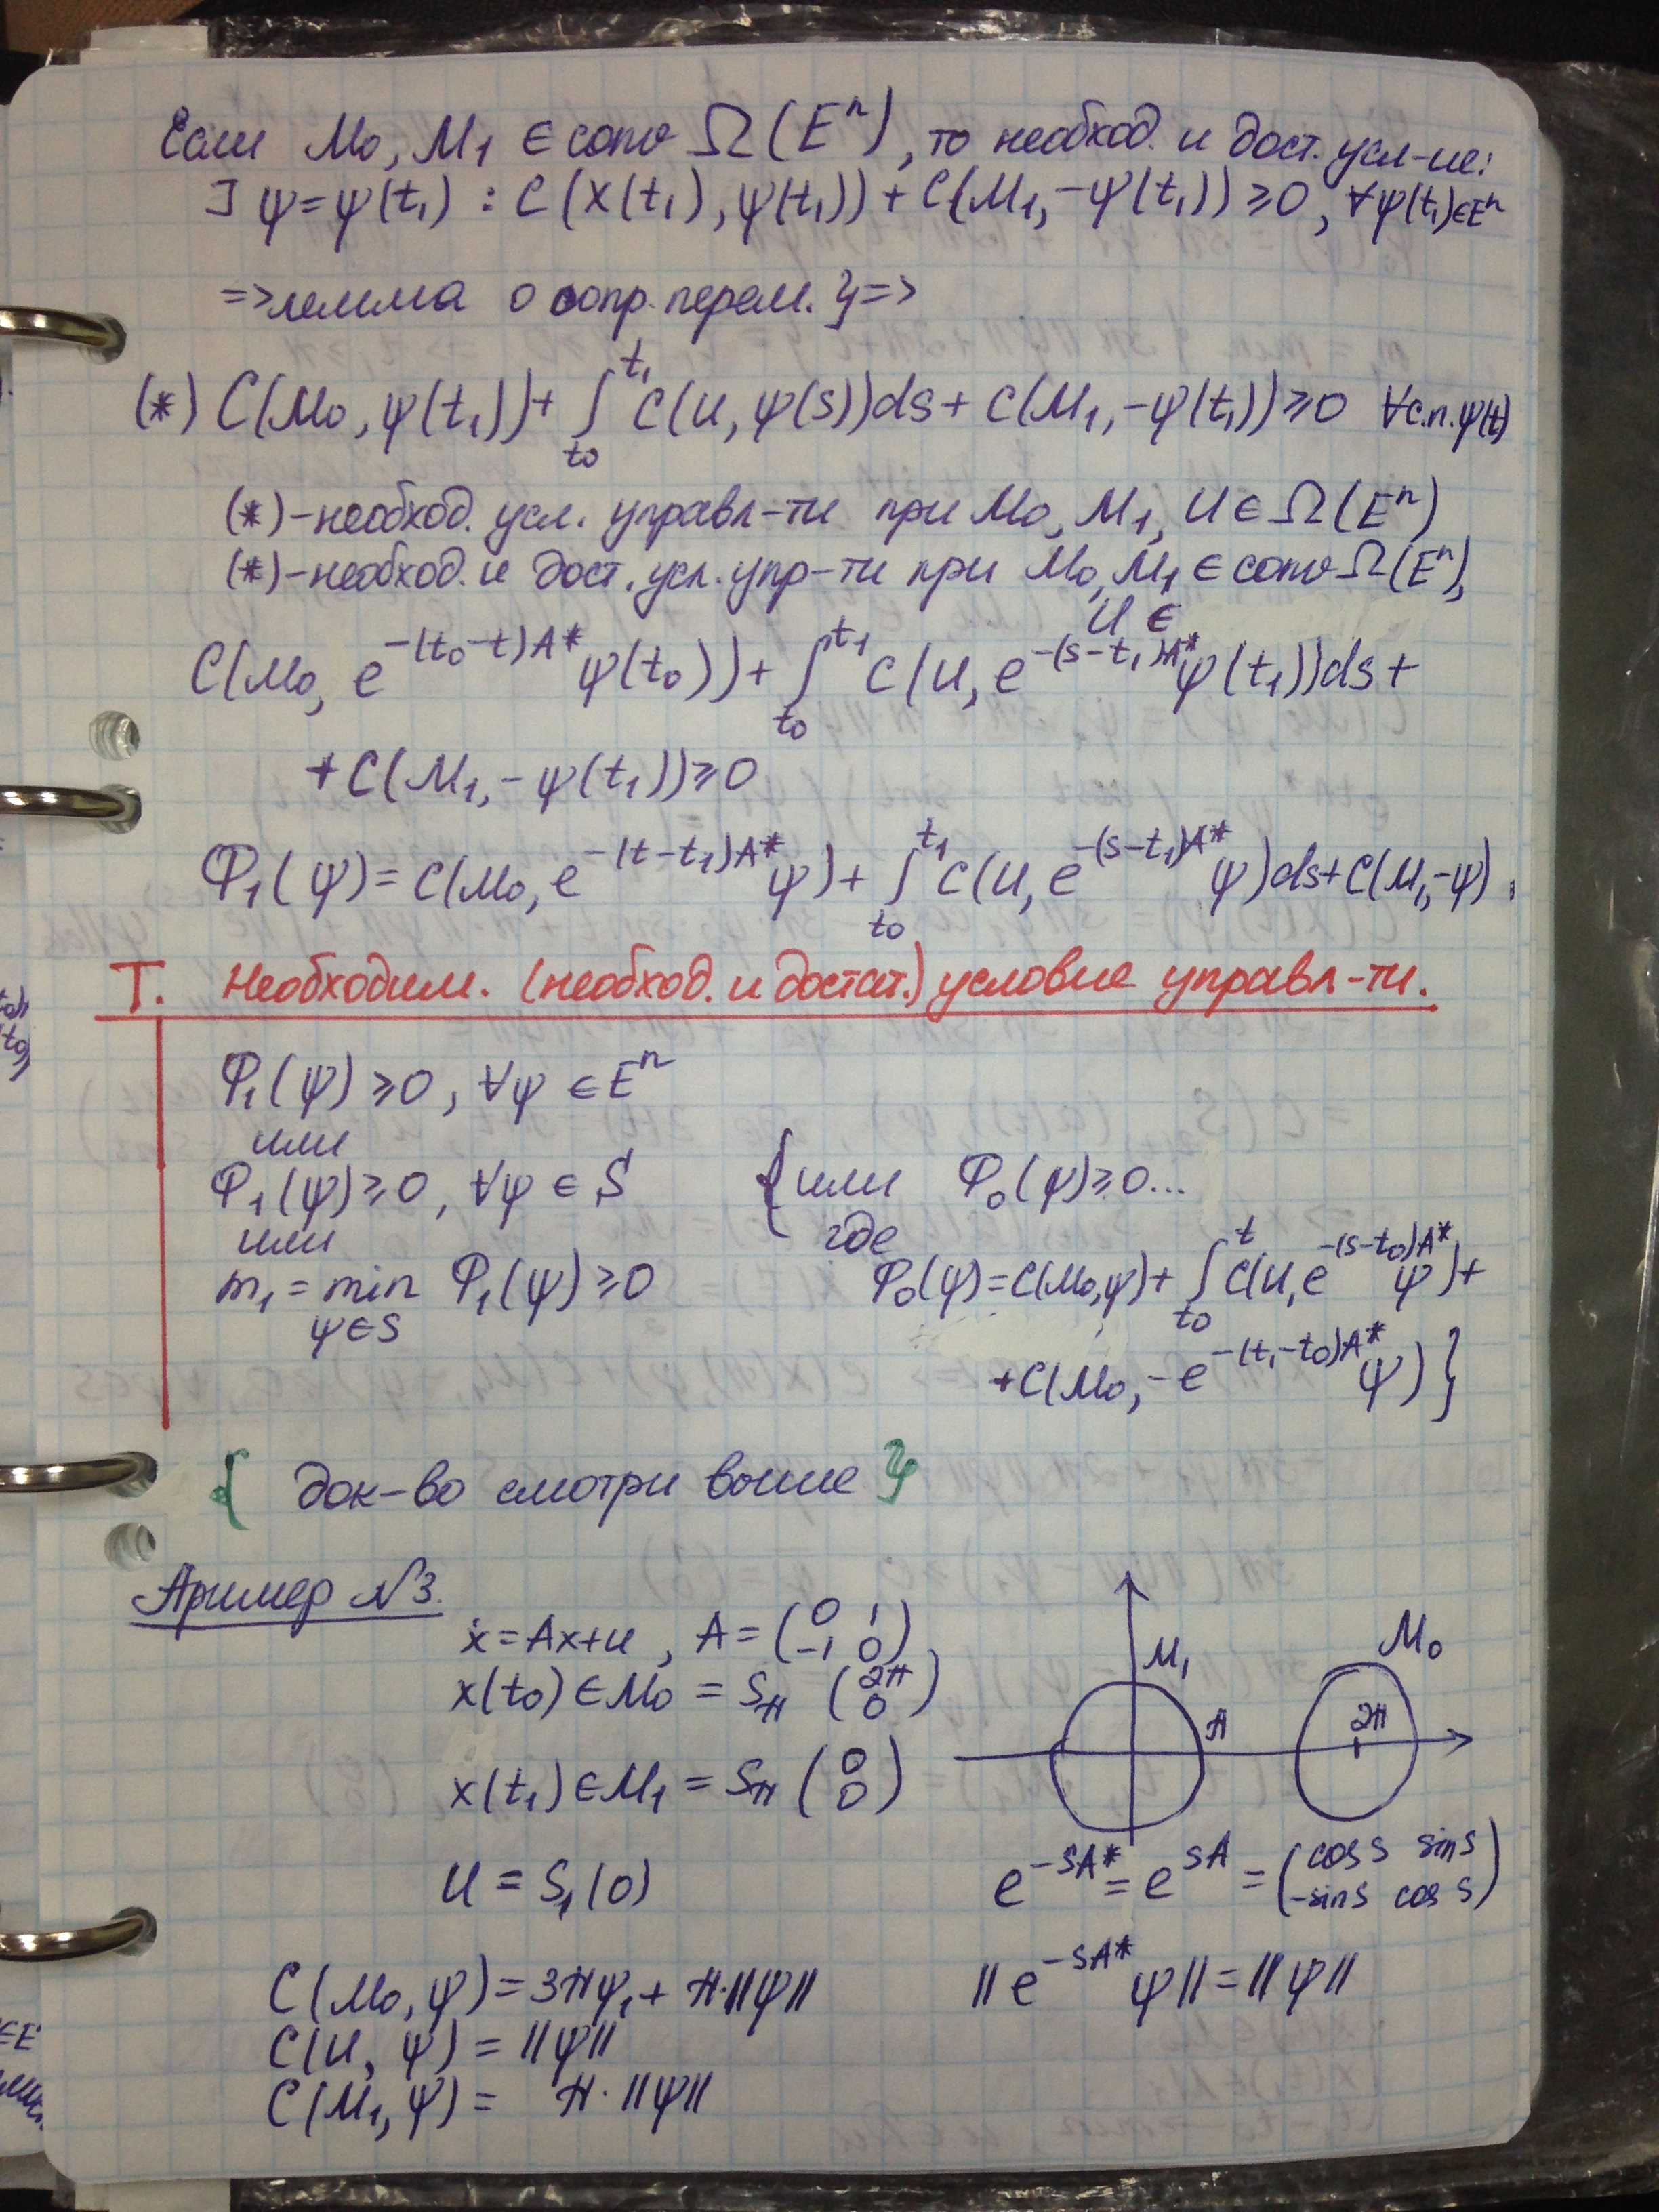 Если M₀, M₁ ∈ conv Ω(Eⁿ), то необход. и дост. усл-ие:
∃ ψ = ψ(t₁) : C(X(t₁), ψ(t₁)) + C(M₁, -ψ(t₁)) ≥ 0, ∀ψ(t₁)∈Eⁿ
=> лемма о сопр. перем. } =>
(*) C(M₀, ψ(t₁)) + ∫_{t₀}^{t₁} C(U, ψ(s))ds + C(M₁, -ψ(t₁)) ≥ 0 ∀ с.п. ψ(t)
(*) - необход. усл. управл-ти при M₀, M₁, U ∈ Ω(Eⁿ)
(*) - необход. и дост. усл. упр-ти при M₀, M₁ ∈ conv Ω(Eⁿ),
U ∈
C(M₀, e^{-(t₀-t)A*} ψ(t₀)) + ∫_{t₀}^{t₁} C(U, e^{-(s-t₁)A*} ψ(t₁))ds +
+ C(M₁, -ψ(t₁)) ≥ 0
Φ₁(ψ) = C(M₀, e^{-(t-t₁)A*} ψ) + ∫_{t₀}^{t₁} C(U, e^{-(s-t₁)A*} ψ)ds + C(M₁, -ψ)
Т. Необходим. (необход. и достат.) условие управл-ти.
Φ₁(ψ) ≥ 0, ∀ψ ∈ Eⁿ
или
Φ₁(ψ) ≥ 0, ∀ψ ∈ S { или Φ₀(ψ) ≥ 0...
или где
m₁ = min_{ψ∈S} Φ₁(ψ) ≥ 0 Φ₀(ψ) = C(M₀, ψ) + ∫_{t₀}^{t} C(U, e^{-(s-t₀)A*} ψ) +
+ C(M₀, -e^{-(t₁-t₀)A*} ψ) }
{ док-во смотри выше }
Пример №3.
ẋ = Ax + u, A = (0 1; -1 0)
x(t₀) ∈ M₀ = S_π (2π; 0)
x(t₁) ∈ M₁ = S_π (0; 0)
M₁ M₀
π 2π
U = S₁(0) e^{-sA*} = e^{sA} = (cos s sin s; -sin s cos s)
C(M₀, ψ) = 3πψ₁ + π·||ψ|| ||e^{-sA*} ψ|| = ||ψ||
C(U, ψ) = ||ψ||
C(M₁, ψ) = π·||ψ||